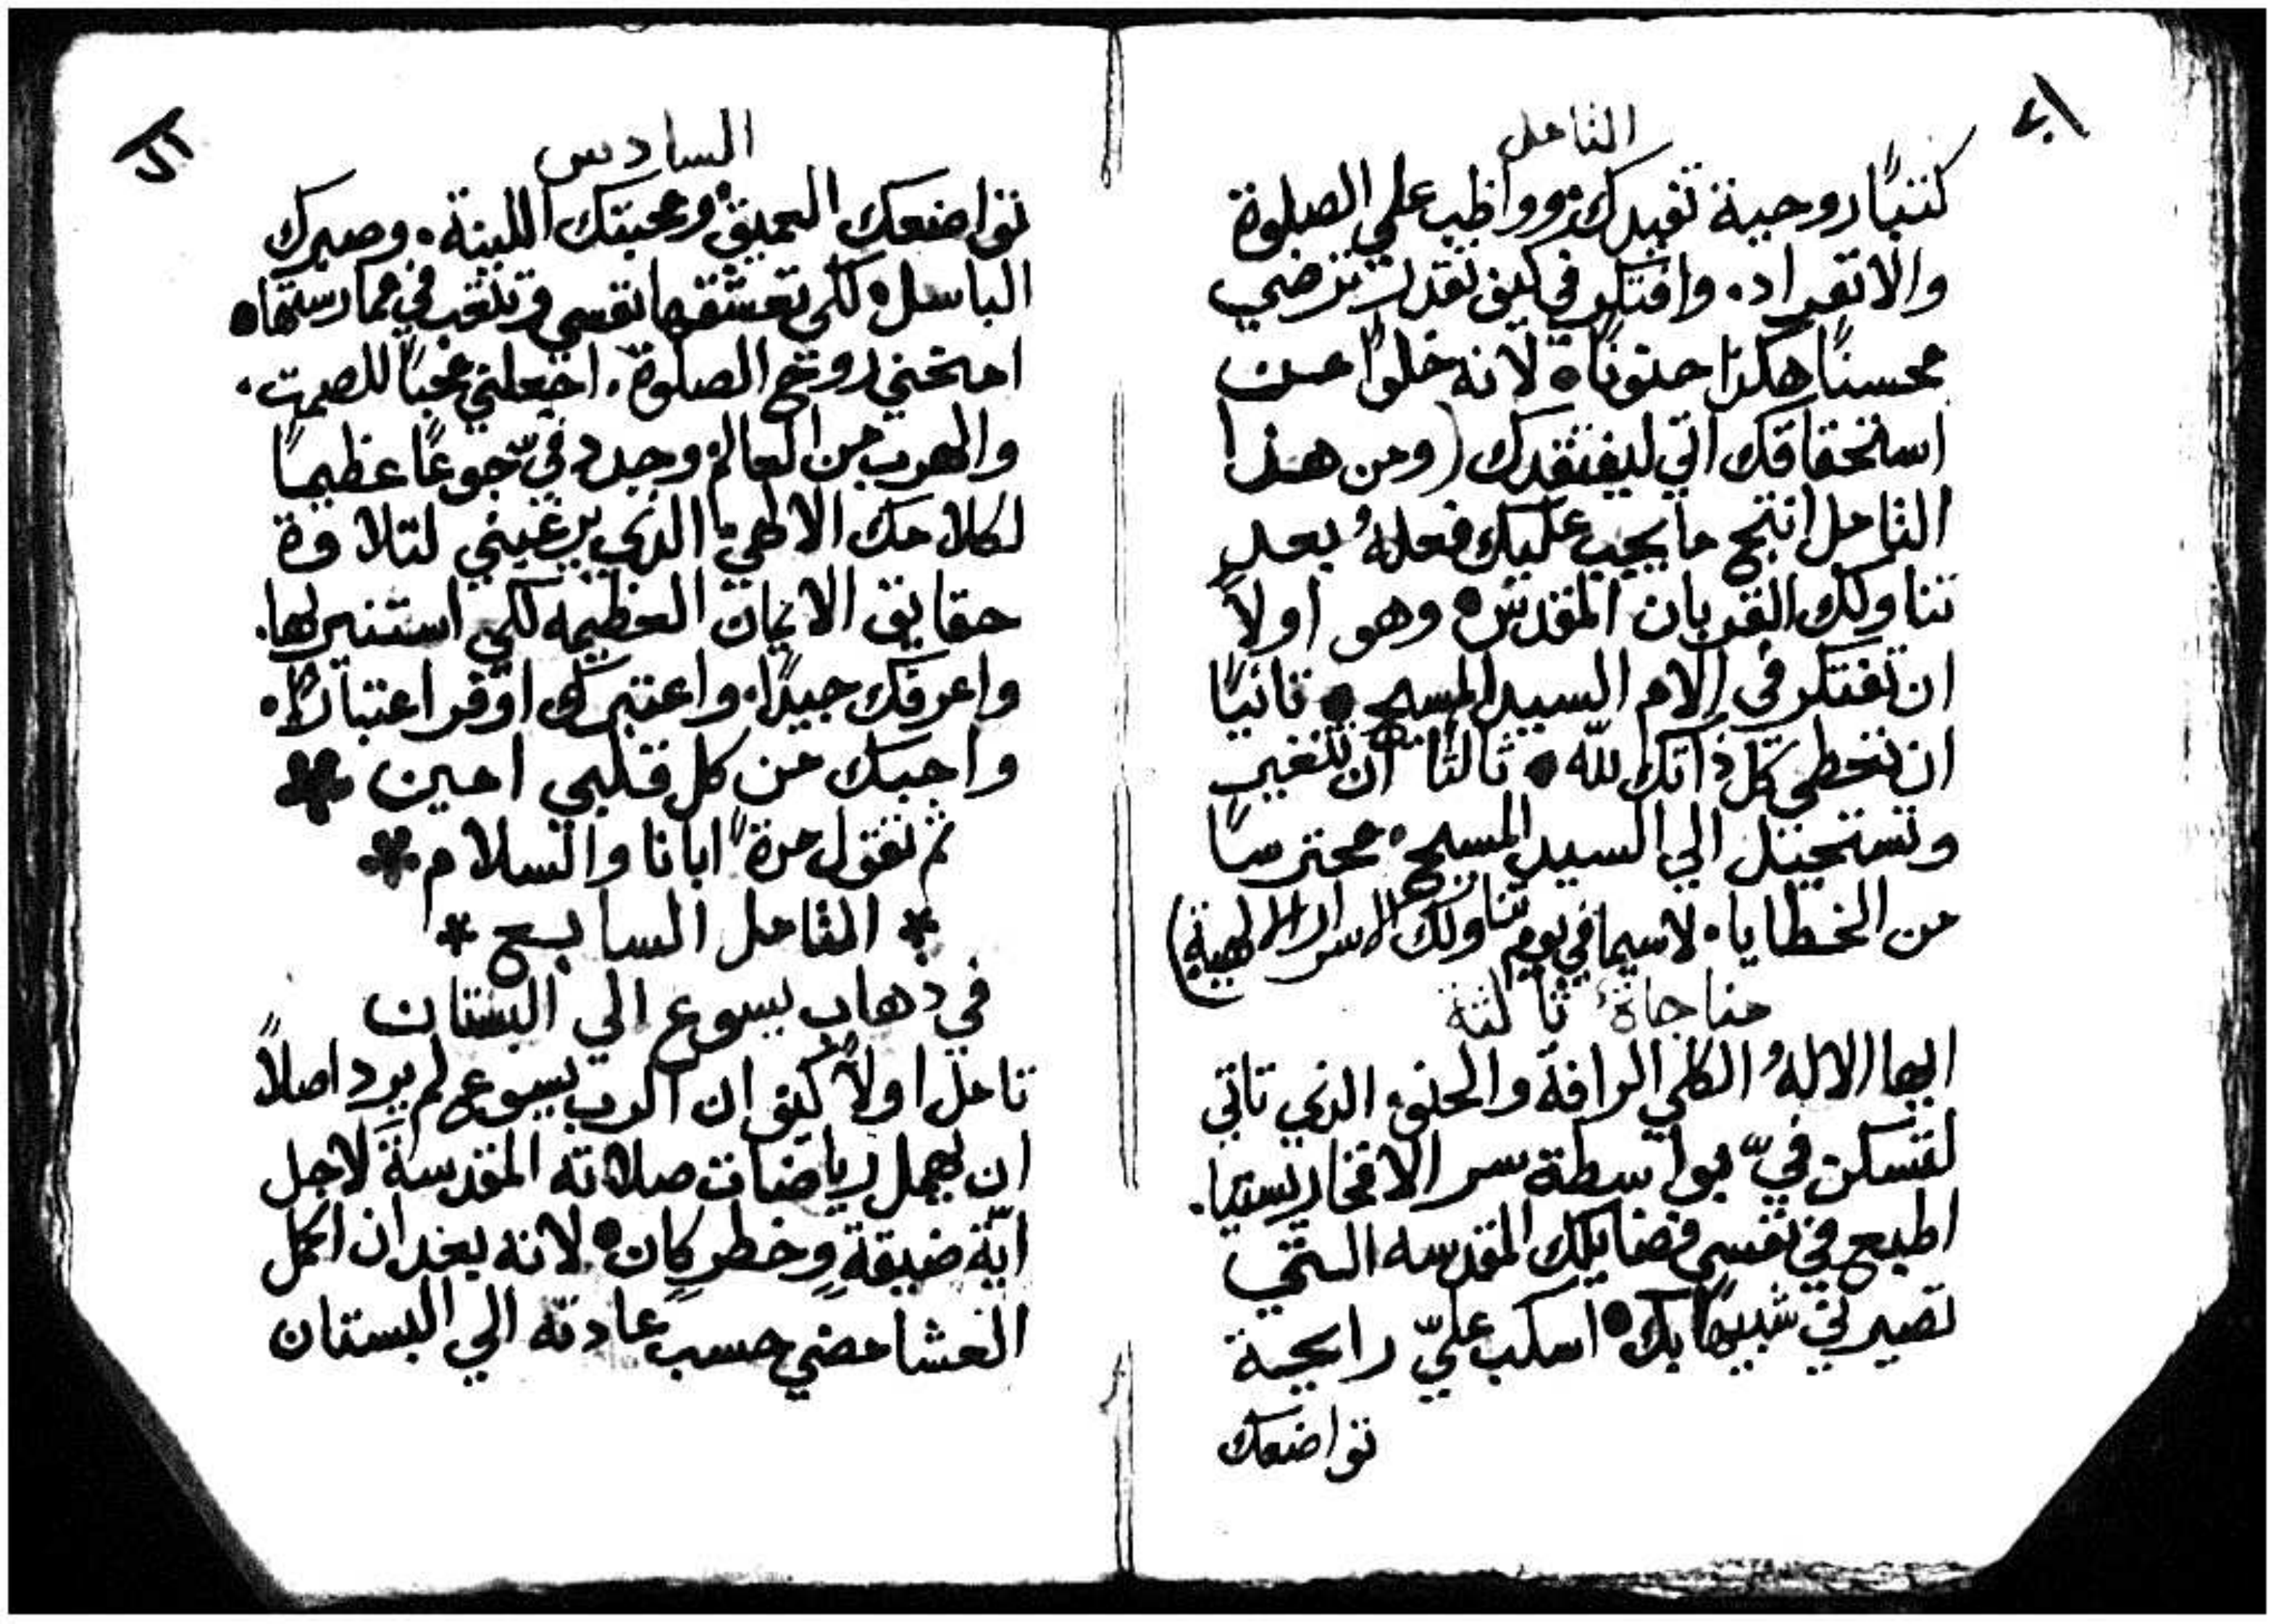 التامل
كتبًا روحية تفيدك، وواظب علي الصلوة
والانفراد. وافتكر في كيف تقدر ترضي
محسنًا هكذا حنونًا. لانه خلوًا من
استحقاقك اتي ليفتقدك (ومن هذا
التامل انتج ما يجب عليك فعلهُ بعد
تناولك القربان المقدس. وهو اولاً
ان تفتكر في الام السيد المسيح. ثانيًا
ان تعطي كل ذاتك لله. ثالثًا ان تتغير
وتستحيل الي السيد المسيح. محترسًا
من الخطايا. لاسيما في يوم تناولك الاسرار الالهية)
مناجاة ثالثة
ايها الالهُ الكلي الرافة والحنو، الذي تاتي
لتسكن فيّ بواسطة سر الافخاريستيا.
اطبع في نفسي فضايلك المقدسه التي
تصيرني شبيهًا بك. اسكب عليّ رايحية
تواضعك
السادس
تواضعك العميق، ومحبتك اللينة. وصبرك
الباسل. لكي تعشقها نفسي وتتعب في ممارستها.
امنحني روح الصلوة. اجعلني محبًا للصمت.
والهرب من العالم، وجدد فيّ جوعًا عظيمًا
لكلامك الالهي، الذي يرغبني لتلاوة
حقايق الايمان العظيمه لكي استنير بها.
واعرفك جيدًا. واعتبرك اوفر اعتبارًا.
واحبك من كل قلبي امين *
ثم تقول مرةً ابانا والسلام *
* التامل السابع *
في ذهاب يسوع الي البستان
تامل اولاً كيف ان الرب يسوع لم يرد اصلاً
ان يهمل رياضات صلاته المقدسة لاجل
ايّة ضيقةٍ وخطرٍ كان. لانه بعد ان اكمل
العشا مضي حسب عادته الي البستان